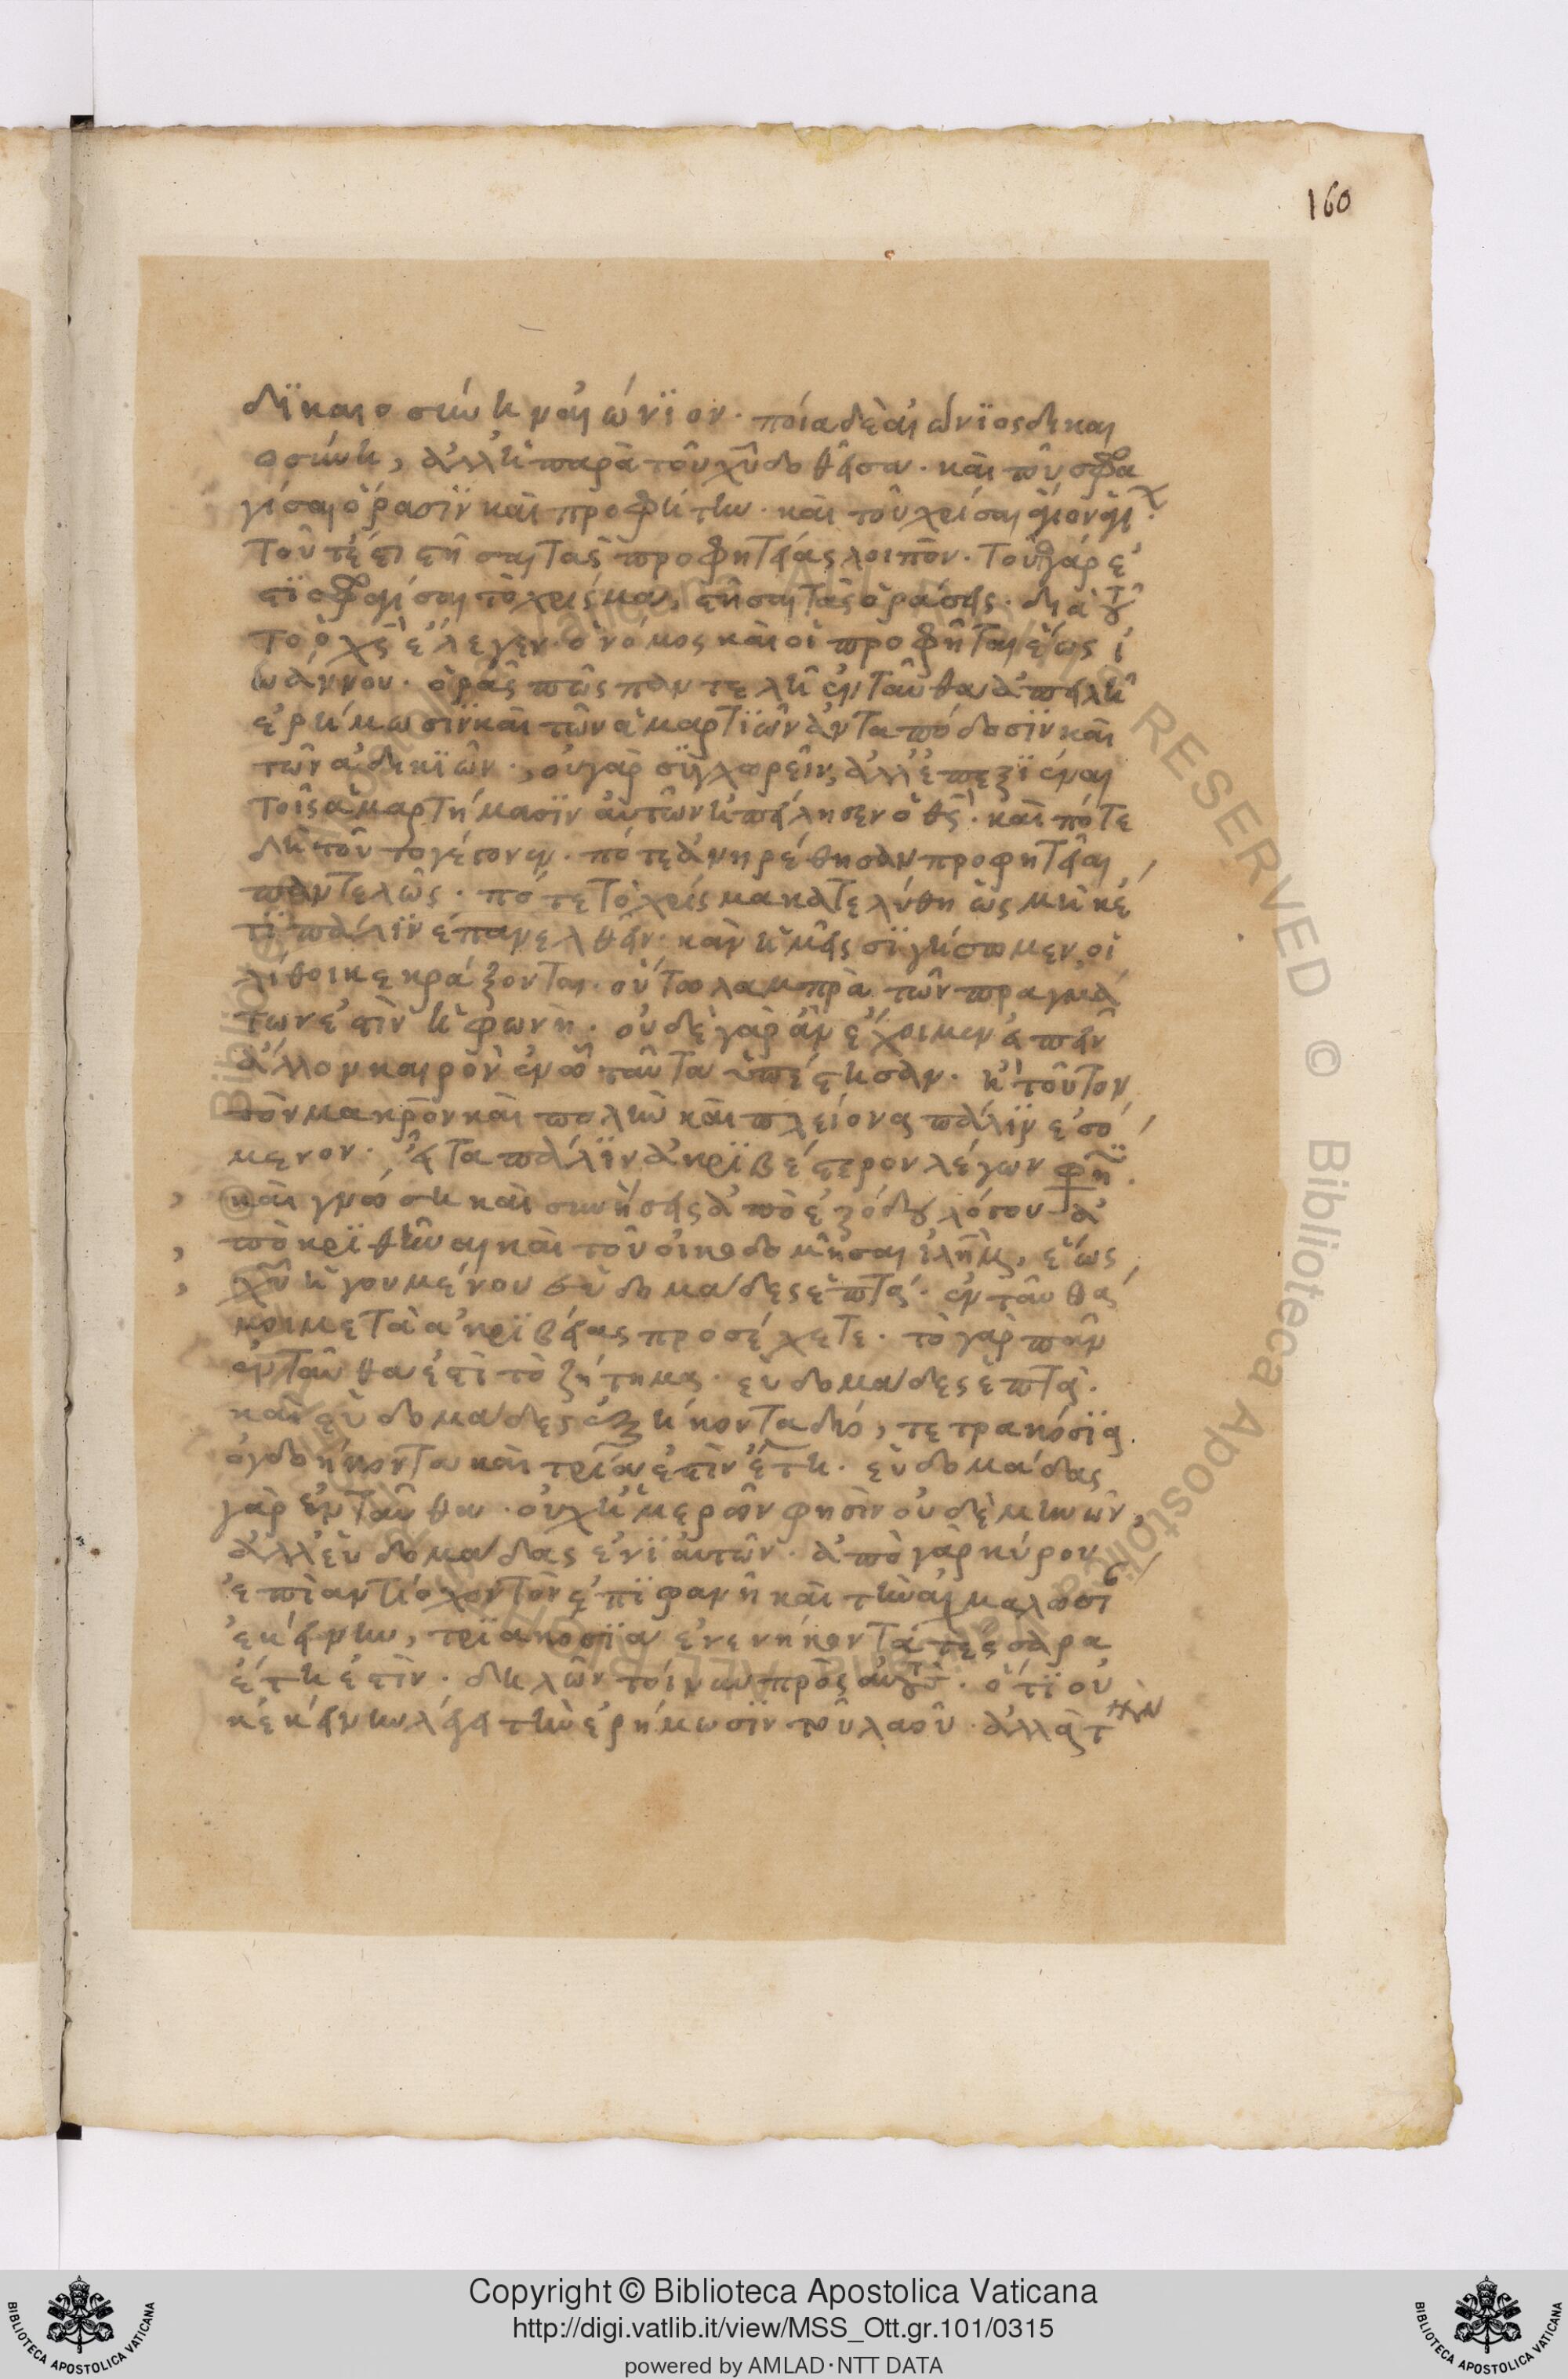 160
δϊκαιοσύνην αἰώνϊον· ποία δὲ αἰώνϊος δικαι
οσύνη, ἀλλ' ἢ παρὰ τοῦ χ͞υ δοθεῖσα· καὶ τοῦ σφρα
γίσαι ὅρασϊν καὶ προφήτην· καὶ τοῦ χρίσαι ἅγιον ἁγί
τουτέστι στῆσαι τὰς προφητείας λοιπὸν· τοῦ γάρ ἐ
στϊ σφραγίσαι τὸ χρίσμα, στῆσαι τὰς ὁράσεις· διὰ τοῦ
το ὁ χ͞ς ἔλεγεν· ὁ νόμος καὶ οἱ προφῆται ἕως ἰ
ωάννου· ὁρᾷς πῶς παντελῆ ἐνταῦθα ἀπειλεῖ
ἐρήμωσϊν καὶ τῶν ἁμαρτϊῶν ἀνταπόδοσϊν καὶ
τῶν ἀδικϊῶν·, οὐ γὰρ σϋγχωρεῖν, ἀλλ' ἐπεξϊέναι
τοῖς ἁμαρτήμασϊν αὐτῶν ἠπείλησεν ὁ θ͞ς· καὶ πότε
δὴ τοῦτο γέγονεν· πότε ἀνῃρέθησαν προφητεῖαι
παντελῶς· πότε τὸ χρίσμα κατελύθη ὡς μηκέ
τϊ πάλϊν ἐπανελθεῖν· κἂν ἡμεῖς σϊγήσωμεν, οἱ
λίθοι κεκράξονται· οὕτω λαμπρὰ τῶν πραγμά
των ἐστὶν ἡ φωνή· οὐδὲ γὰρ ἂν ἔχοιμεν εἰπεῖν
ἄλλον καιρὸν ἐν ᾧ ταῦτα ὑπέστησαν· ἢ τοῦτον
τὸν μακρὸν καὶ πολὺν καὶ πλείονα πάλϊν ἐσό
μενον· εἶτα πάλϊν ἀκρϊβέστερον λέγων φη·
καὶ γνώσῃ καὶ συνήσεις ἀπὸ ἐξόδου λόγου ἀ
ποκρϊθῆναι καὶ τοῦ οἰκοδομῆσαι ἰλημ, ἕως
χ͞υ ἡγουμένου ἑυδομάδες ἑπτά· ἐνταῦθά
μοι μετὰ ἀκρϊβείας προσέχετε· τὸ γὰρ πᾶν
ἐνταῦθα ἐστὶ τὸ ζήτημα· ἑυδομάδες ἑπτὰ·
καὶ ἑυδομάδες ἑξήκοντα δύο, τετρακόσϊα
ὀγδοήκοντα καὶ τρία ἐστὶν ἔτη· ἑυδομάδας
γὰρ ἐνταῦθα· οὐχ ἡμερῶν φησὶν οὐδὲ μηνῶν,
ἀλλ' ἑυδομάδας ἐνϊαυτῶν· ἀπὸ γὰρ κύρου
ἐπὶ ἀντίοχον τὸν ἐπϊφανῆ καὶ τὴν αἰχμαλωσί
ἐκείνην, τρϊακόσϊα ἐνενήκοντά τέσσαρα
ἔτη ἐστὶν· δηλῶν τοίνυν πρὸς αὐτὸν· ὅτϊ οὐ
κ ἐκείνην λέγει τὴν ἐρήμωσϊν τοῦ λαοῦ· ἀλλὰ τὴν
Copyright © Biblioteca Apostolica Vaticana
http://digi.vatlib.it/view/MSS_Ott.gr.101/0315
powered by AMLAD·NTT DATA
BIBLIOTECA APOSTOLICA VATICANA
BIBLIOTECA APOSTOLICA VATICANA